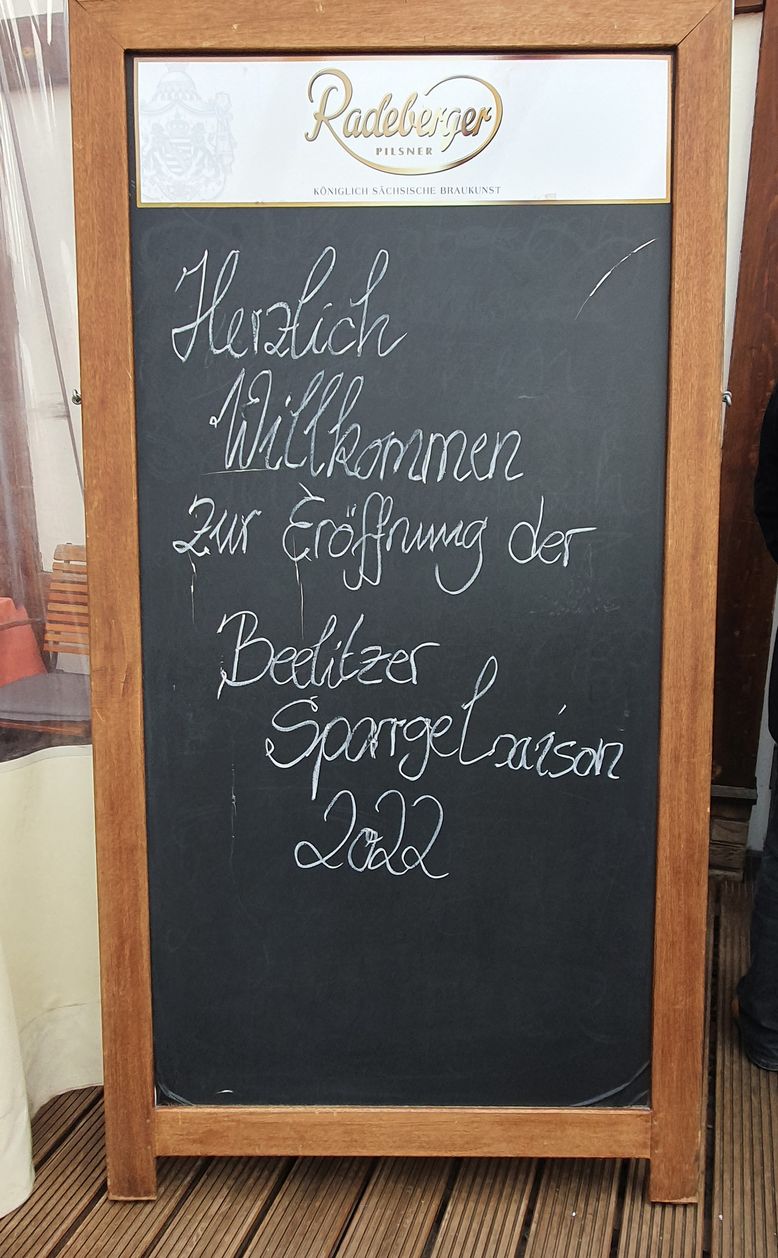 Radeberger
PILSNER
KÖNIGLICH SÄCHSISCHE BRAUKUNST
Herzlich
Willkommen
zur Eröffnung der
Beelitzer
Spargelsaison
2022